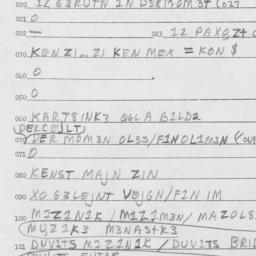 020. 12 G3RUTN IN D3RMOM3T (027
021. O
022. — 023. 12 PAXOZT
030. KEN ZI...ZI KEN MEX = KON $
040. O
050. O
060. KARTBINK3 OGLA BILD2
DERCEJLT
070. DER MOM3N OL3S/FINOLIM3N (069
071. O
080. KENST MAJN ZIN
090. XO G3LEJNT VEJGN/FIN IM
100. M1Z1N1K / M1Z1M3N/ MAZOLS
MUZIK3 M3NASTK3
101. DUVITS M1Z1N1K / DUVITS BRID